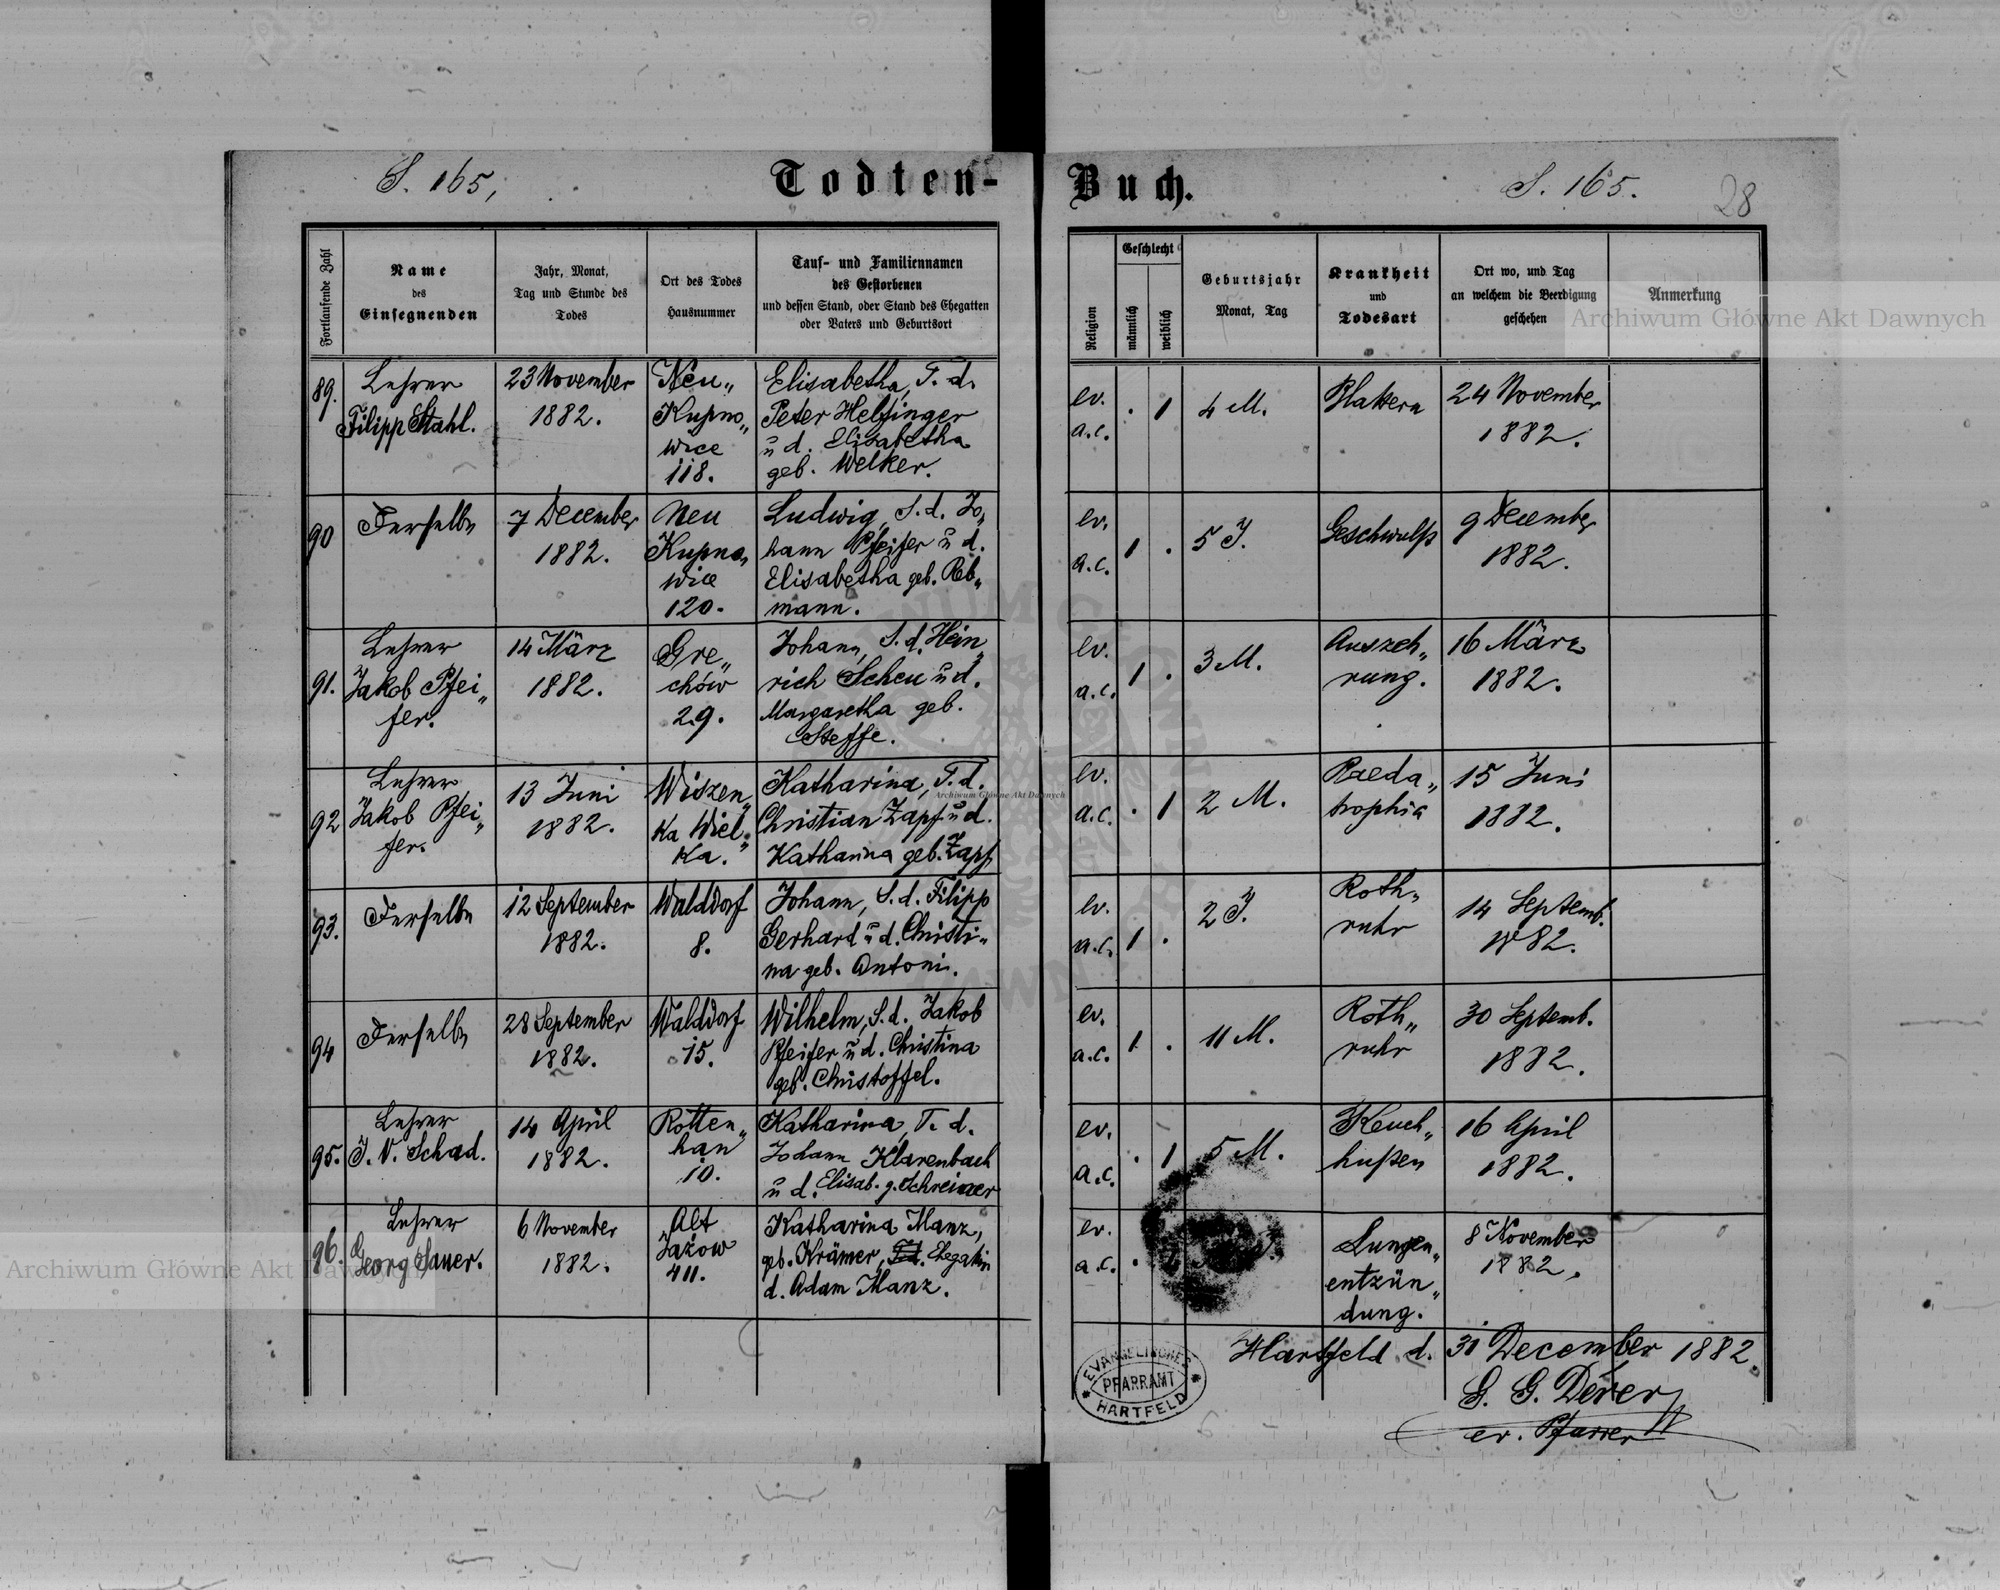 S. 165,
Todten-
Buch.
S. 165.
28
Fortlaufende Zahl
Name
des
Einsegnenden
Jahr, Monat,
Tag und Stunde des
Todes
Ort des Todes
Hausnummer
Tauf- und Familiennamen
des Gestorbenen
und dessen Stand, oder Stand des Ehegatten
oder Vaters und Geburtsort
Religion
Geschlecht
männlich
weiblich
Geburtsjahr
Monat, Tag
Krankheit
und
Todesart
Ort wo, und Tag
an welchem die Beerdigung
geschehen
Anmerkung
89.
Lehrer
Filipp Stahl.
23 November
1882.
Neu„
Kupno„
wice
118.
Elisabetha, T. d.
Peter Helfinger
u d. Elisabetha
geb. Welker.
ev.
a.c.
. 1
4 M.
Blattern
24 November
1882.
90
Derselbe
7 December
1882.
Neu
Kupno„
wice
120.
Ludwig, S. d. Jo„
hann Pfeifer u d.
Elisabetha geb. Reb„
mann.
ev.
a.c.
1 .
5 J.
Geschwulst
9 December
1882.
91.
Lehrer
Jakob Pfei„
fer.
14 März
1882.
Gre„
chów
29.
Johann, S. d. Hein„
rich Scheu u d.
Margaretha geb.
Steffe.
ev.
a.c.
1 .
3 M.
Auszeh„
rung.
16 März
1882.
92
Lehrer
Jakob Pfei„
fer.
13 Juni
1882.
Wiszen„
ka Wiel„
ka.
Katharina, T. d.
Christian Zapf u d.
Katharina geb. Zapf
ev.
a.c.
. 1
2 M.
Paeda„
trophia
15 Juni
1882.
93.
Derselbe
12 September
1882.
Walddorf
8.
Johann, S. d. Filipp
Gerhard u d. Christi„
na geb. Antoni.
ev.
a.c.
1 .
2 J.
Roth„
ruhr
14 Septemb.
1882.
94
Derselbe
28 September
1882.
Walddorf
15.
Wilhelm, S. d. Jakob
Pfeifer u d. Christina
geb. Christoffel.
ev.
a.c.
1 .
11 M.
Roth„
ruhr
30 Septemb.
1882.
95.
Lehrer
J. N. Schad.
14 April
1882.
Rotten„
han
10.
Katharina, T. d.
Johann Klarenbach
u d. Elisab. g. Schreiner
ev.
a.c.
. 1
5 M.
Keuch„
husten
16 April
1882.
96.
Lehrer
Georg Sauer.
6 November
1882.
Alt
Jażow
411.
Katharina Manz,
geb. Krämer, T. d. Ehegatin
d. Adam Manz.
ev.
a.c.
.
Lungen„
entzün„
dung.
8 November
1882.
Hartfeld d. 31 December 1882.
EVANGELISCHES
PFARRAMT
HARTFELD
ev. Pfarrer
Archiwum Główne Akt Dawnych
Archiwum Główne Akt Dawnych
Archiwum Główne Akt Dawnych